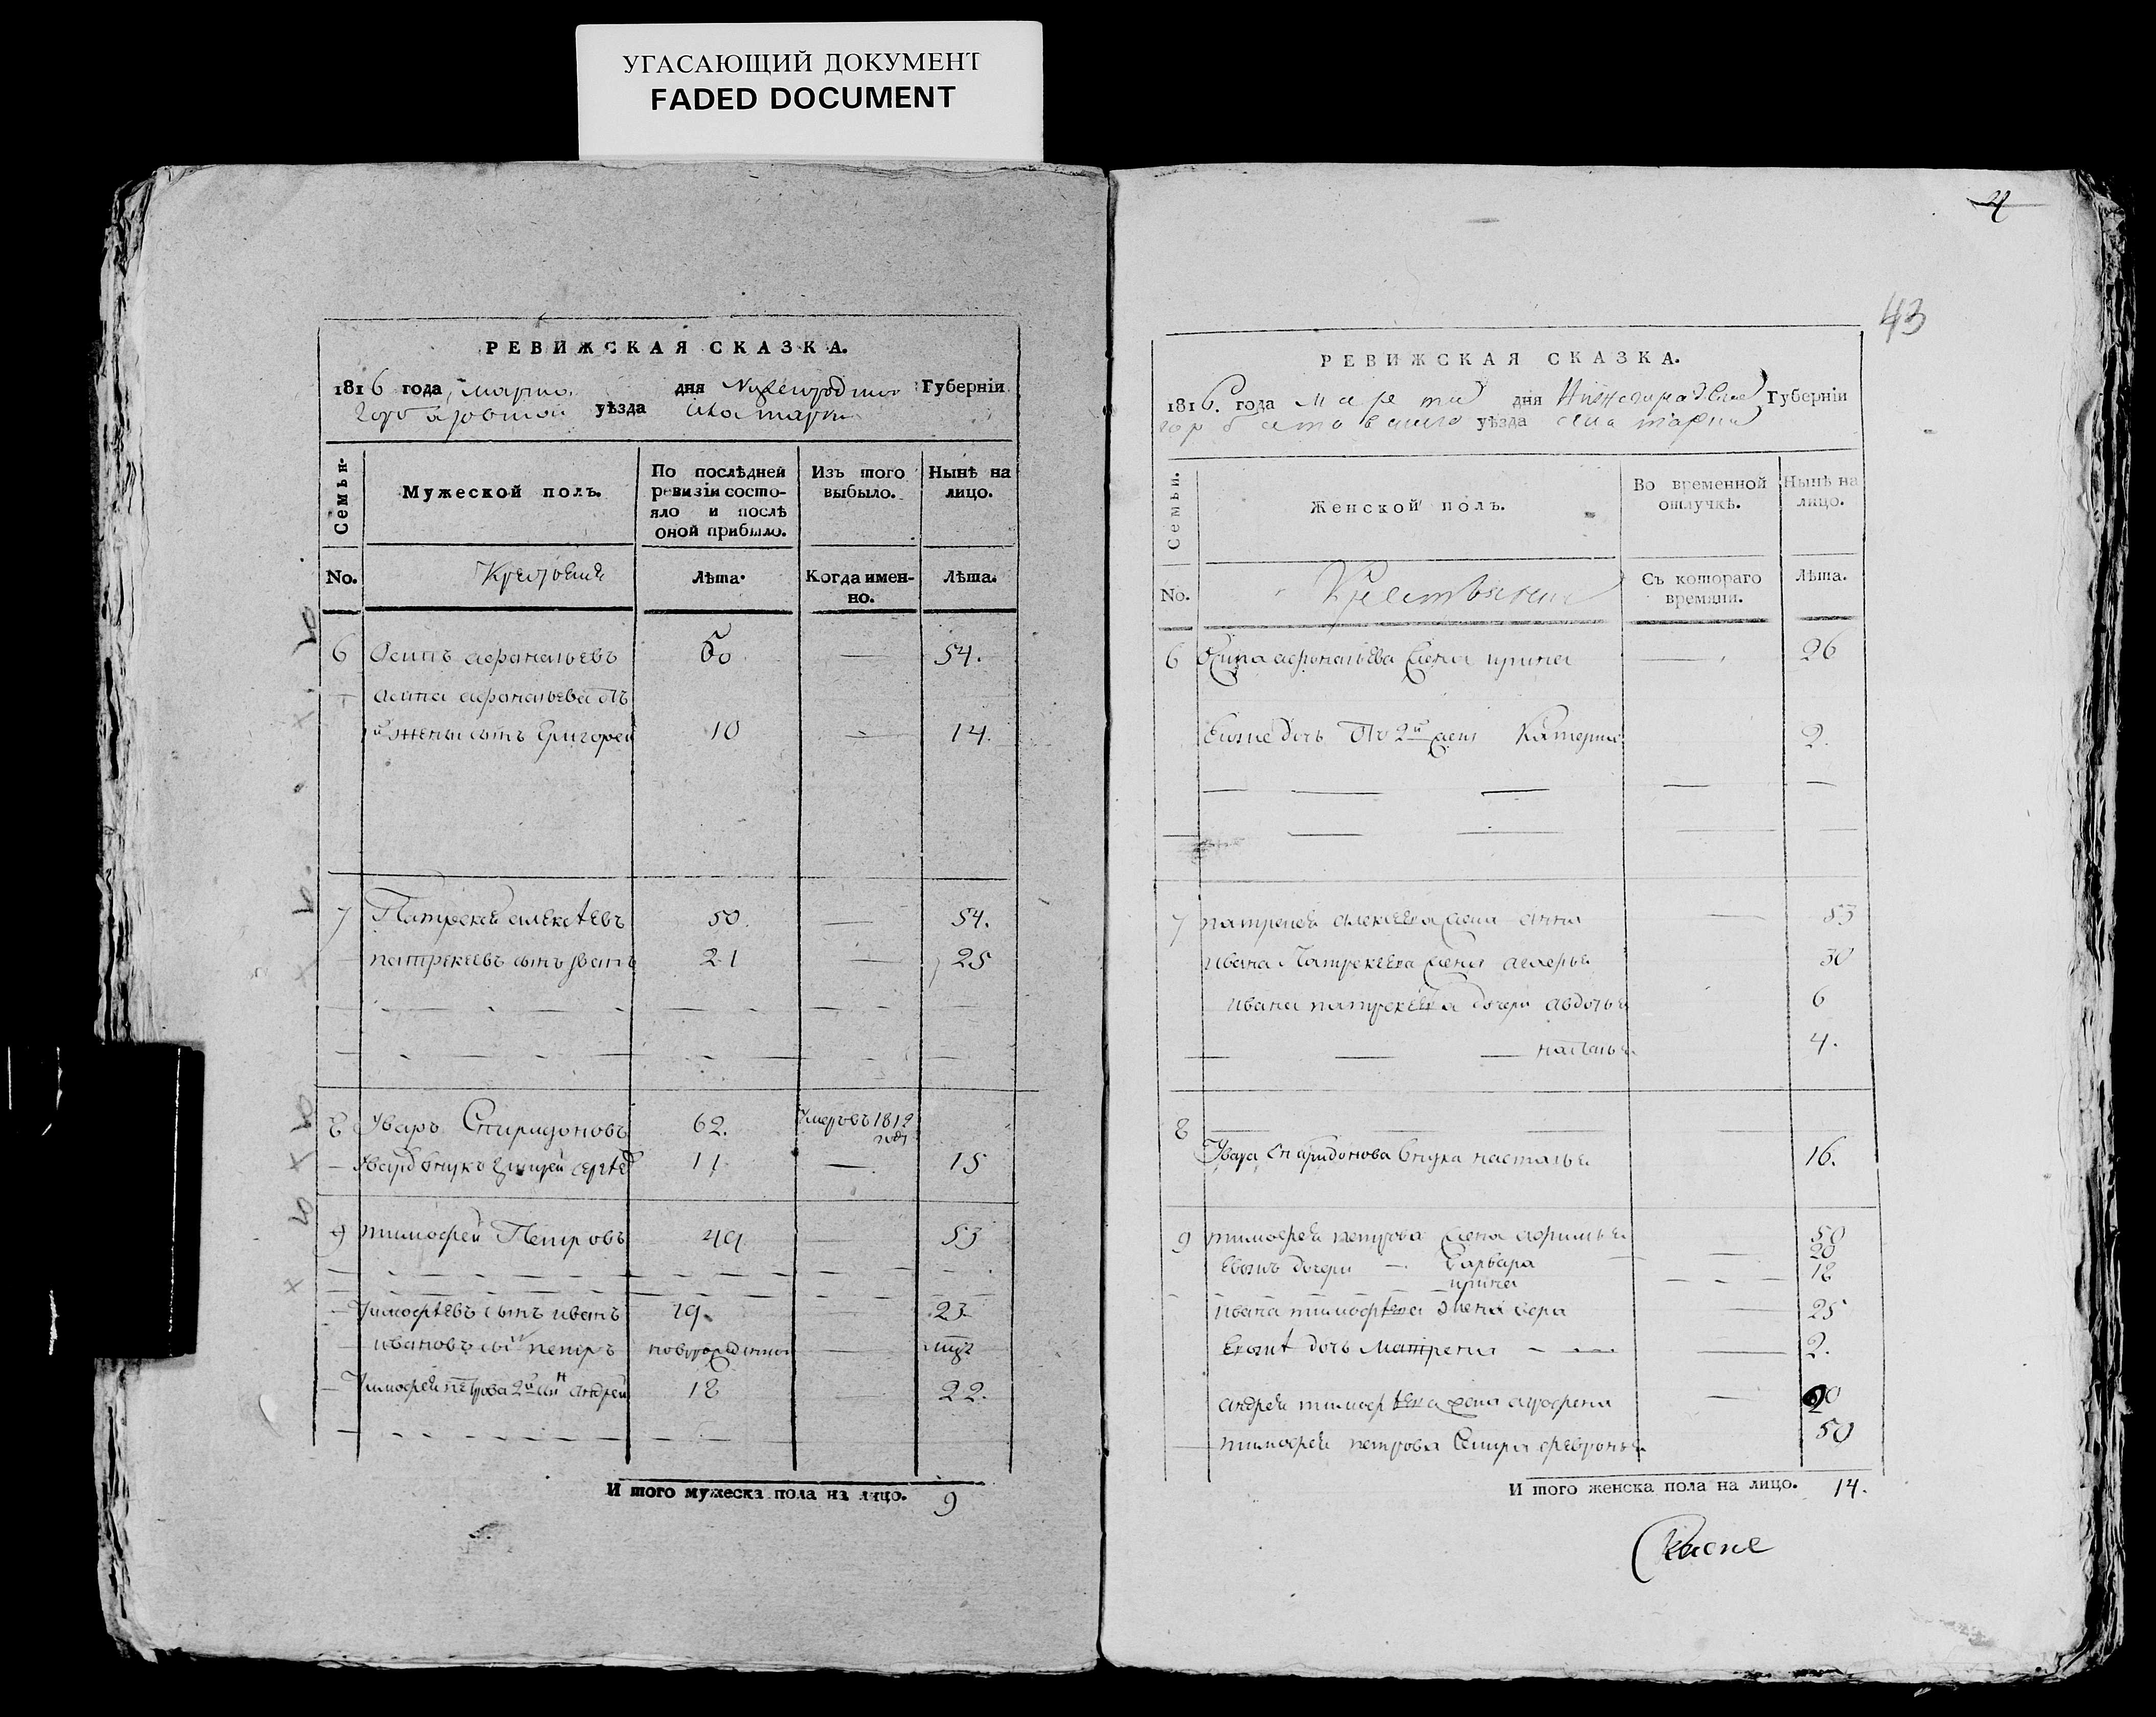 УГАСАЮЩИЙ ДОКУМЕНТ
FADED DOCUMENT
РЕВИЖСКАЯ СКАЗКА.
1816 года марта дня Губерніи
уѣзда
Семьи.
Мужеской полъ.
По послѣдней ревизіи состояло и послѣ оной прибыло.
Изъ того выбыло.
Нынѣ на лицо.
No.
Лѣта.
Когда именно.
Лѣта.
6 Осипъ афонасьевъ 50 — 54.
осипа афонасьева отъ
й жены сынъ Григорей 10 — 14.
7 Патрекей алексѣевъ 50. — 54.
патрекеевъ сынъ иванъ 21 — 25
8 Уваръ Спиридоновъ 62. умеръ въ 1812 году
внукъ 11 — 15
9 тимофей Петровъ 49 — 53
тимофѣевъ сынъ иванъ 19. 23.
ивановъ сынъ петръ новорожденной —
тимофея петрова 2й сынъ андрей 18 22.
И того мужеска пола на лицо. 9
4
43
РЕВИЖСКАЯ СКАЗКА.
1816. года марта дня Нижегородской Губерніи
горбатовского уѣзда села
Семьи.
Женской полъ.
Во временной отлучкѣ.
Нынѣ на лицо.
No.
Крестьяне
Съ котораго времяни.
Лѣта.
6 Осипа афонасьева жена ирина — 26
Евоже дочь отъ 2й жены Катерина 2.
7 патрекея алексеева жена анна — 53
ивана Патрекеева жена 30
ивана патрекеева дочери авдотья 6
настасья 4.
8
Увара спиридонова внука настасья 16.
9 тимофея петрова жена афимья 50
Евожъ дочери — варвара — 20
ирина 18
ивана тимофѣева жена вера — 25
Евожѣ дочь матрена — 2.
андрея тимофѣева жена — 20
тимофея петрова сестра февронья 50
И того женска пола на лицо. 14.